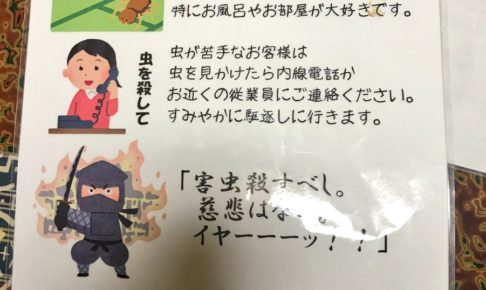 特にお風呂やお部屋が大好きです。
虫を殺して
虫が苦手なお客様は
虫を見かけたら内線電話か
お近くの従業員にご連絡ください。
すみやかに駆逐しに行きます。
「害虫殺すべし。
慈悲はない。
イヤーーーッ！！」